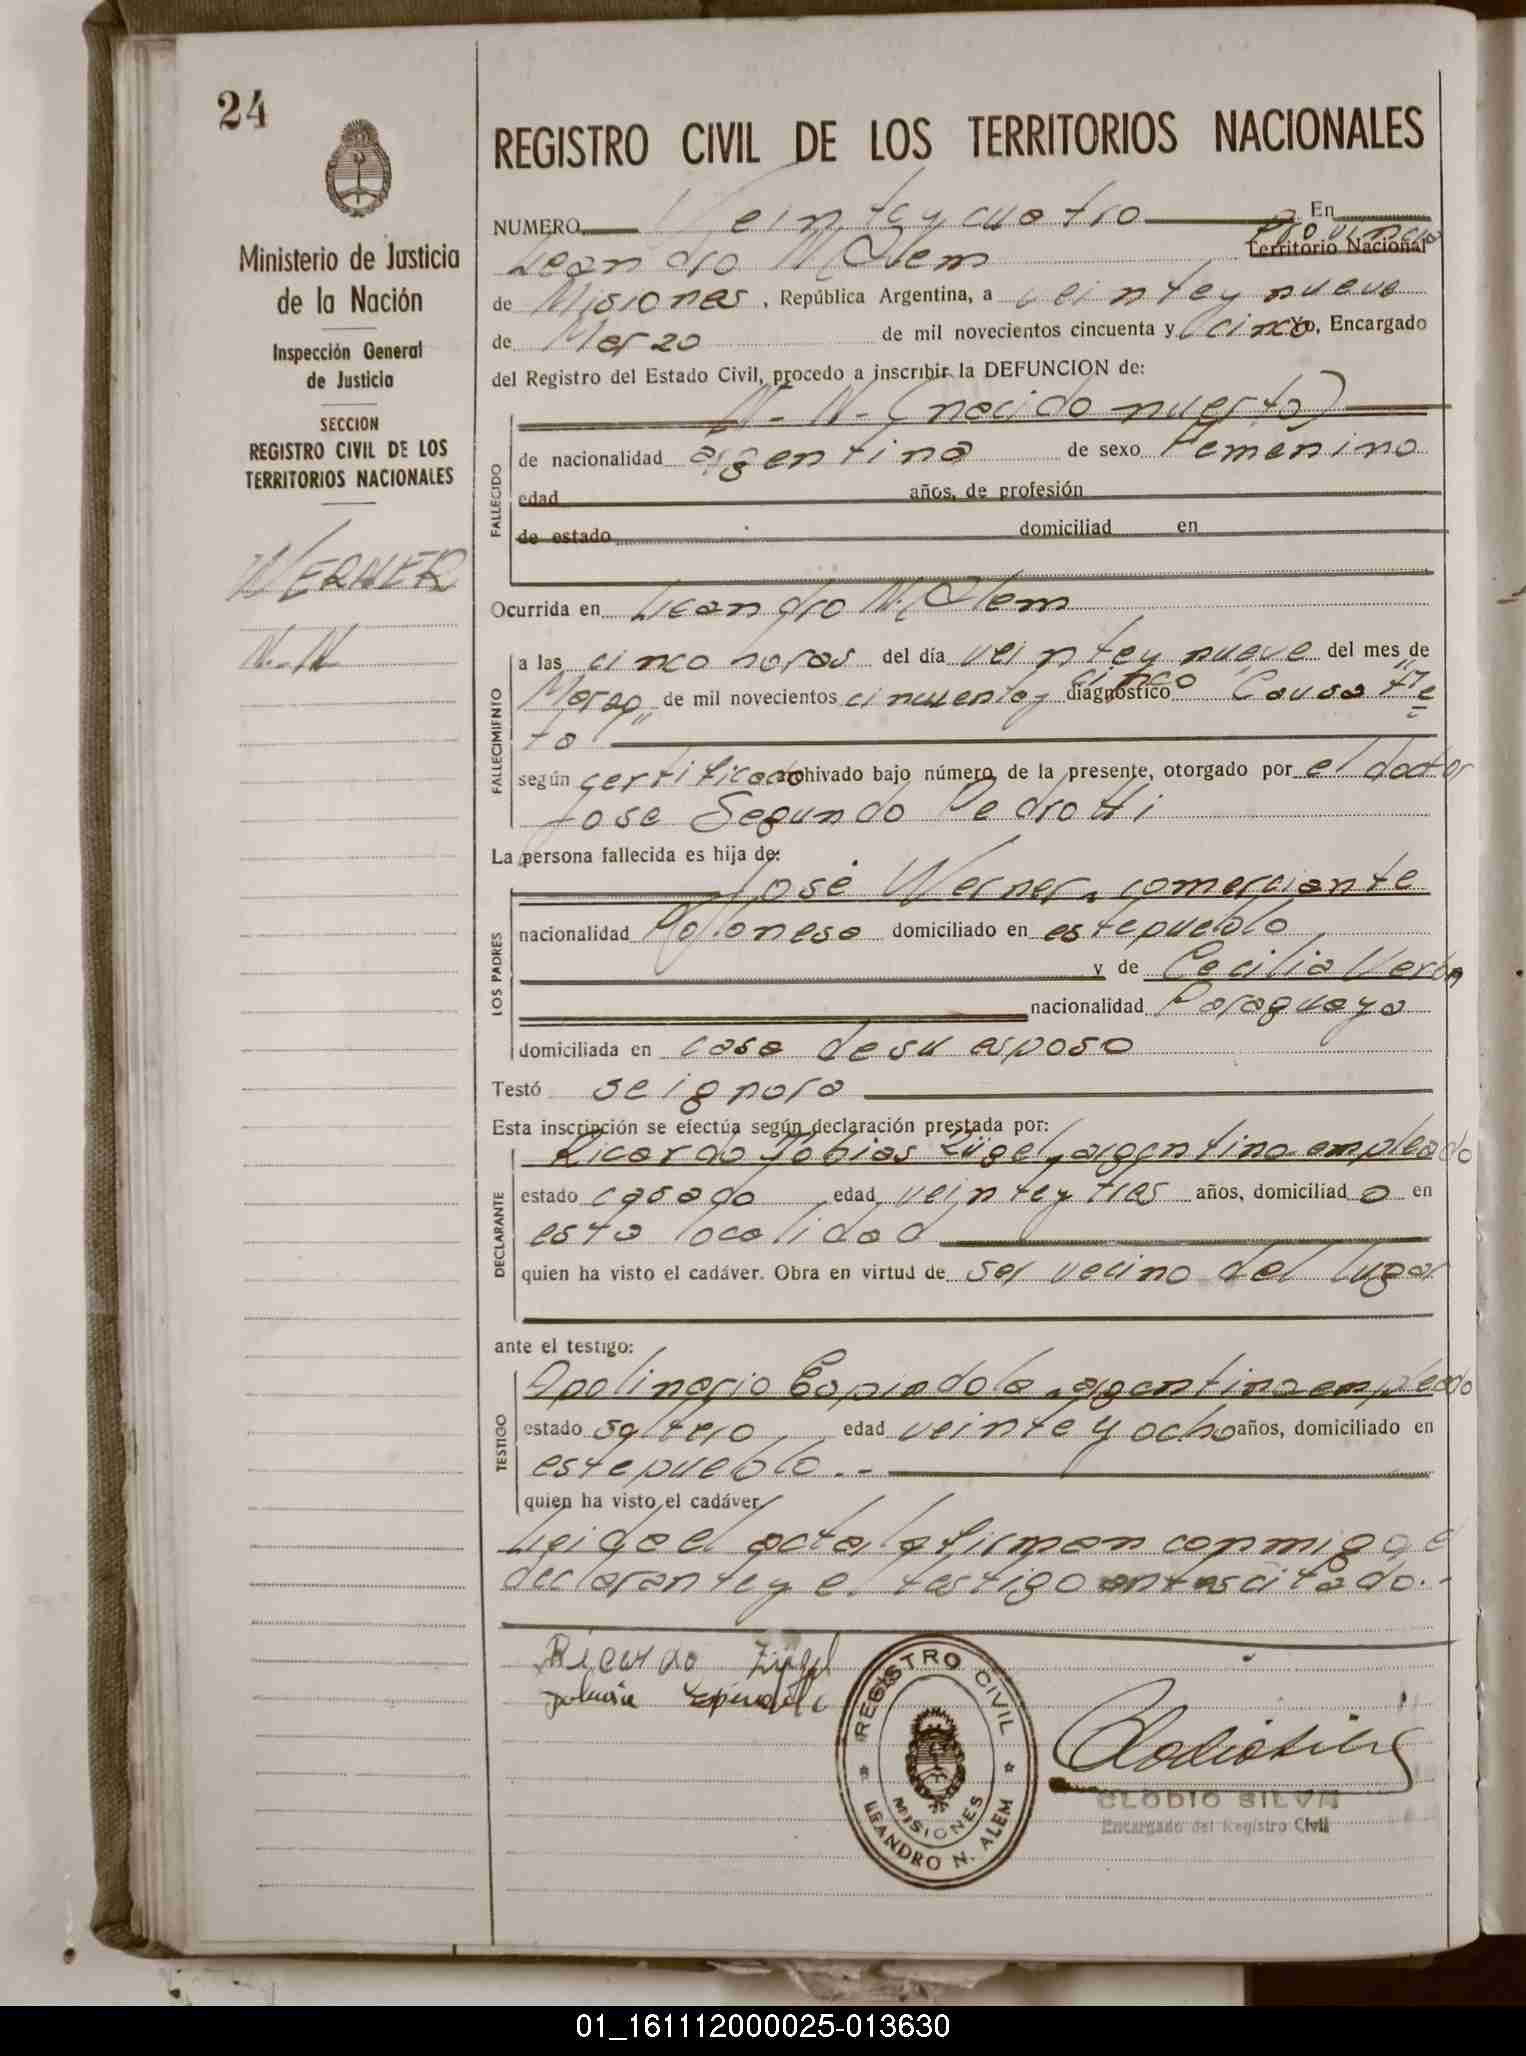 24
Ministerio de Justicia
de la Nación
Inspección General
de Justicia
SECCION
REGISTRO CIVIL DE LOS
TERRITORIOS NACIONALES
WERNER
N.-N
REGISTRO CIVIL DE LOS TERRITORIOS NACIONALES
NUMERO Veintey cuatro En
Leandro N Alem Provincia Territorio Nacional
de Misiones, República Argentina, a veintey nueve
de Marzo de mil novecientos cincuenta y cinco Yo, Encargado
del Registro del Estado Civil, procedo a inscribir la DEFUNCION de:
N- N- (nacido muerto)
FALLECIDO
de nacionalidad argentina de sexo Femenino
edad años, de profesión
de estado domiciliad en
Ocurrida en Leandro N. Alem
FALLECIMIENTO
a las cinco horas del día veintey nueve del mes de
"Marzo" de mil novecientos cincuentay cinco diagnóstico "Causa Fe
ta
según certificado archivado bajo número de la presente, otorgado por el doctor
Jose Segundo Pedrotti
La persona fallecida es hija de:
LOS PADRES
José Werner, comerciante
nacionalidad Polonesa domiciliado en estepueblo
y de Cecilia
nacionalidad Paraguaya
domiciliada en casa desu esposo
Testó seignora
Esta inscripción se efectúa según declaración prestada por:
DECLARANTE
Ricardo Tobias Zügel, argentino empleado
estado casado edad veintey tres años, domiciliado en
esta localidad
quien ha visto el cadáver. Obra en virtud de ser vecino del lugar
ante el testigo:
TESTIGO
Apolinario Espindola, argentino empleado
estado soltero edad veinte y ocho años, domiciliado en
estepueblo.-
quien ha visto el cadáver
Leida el acta la firman conmigo el
declarantey el testigo antescitado.-
Ricardo Zügel
REGISTRO CIVIL
MISIONES
LEANDRO N. ALEM
CLODIO SILVA
Encargado del Registro Civil
01_161112000025-013630